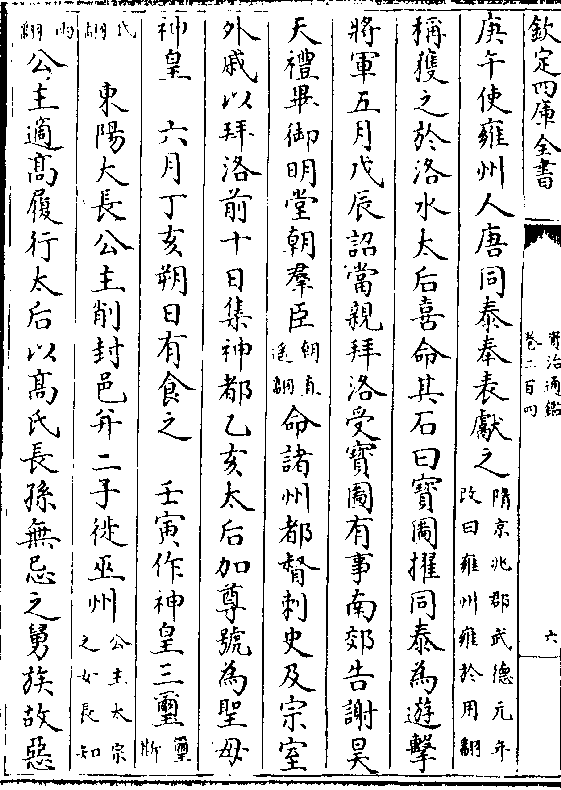 欽定四庫全書
資治通鑑
卷二百四
六
庚午使雍州人唐同泰奉表獻之隋京兆郡武德元年改曰雍州雍於用翻
稱獲之於洛水太后喜命其石曰寶圖擢同泰為遊擊
將軍五月戊辰詔當親拜洛受寶圖有事南郊告謝昊
天禮畢御明堂朝羣臣朝直遥翻命諸州都督刺史及宗室
外戚以拜洛前十日集神都乙亥太后加尊號為聖母
神皇　六月丁亥朔日有食之　壬寅作神皇三璽璽斯
氏翻　東陽大長公主削封邑并二子徙巫州公主太宗之女長知
兩翻公主適髙履行太后以髙氏長孫無忌之舅族故惡